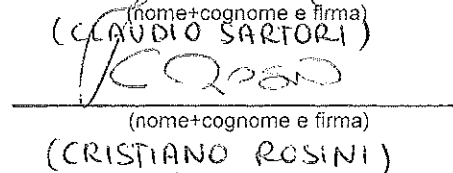 (nome+cognome e firma)
(CLAUDIO SARTORI)
(nome+cognome e firma)
(CRISTIANO ROSINI)